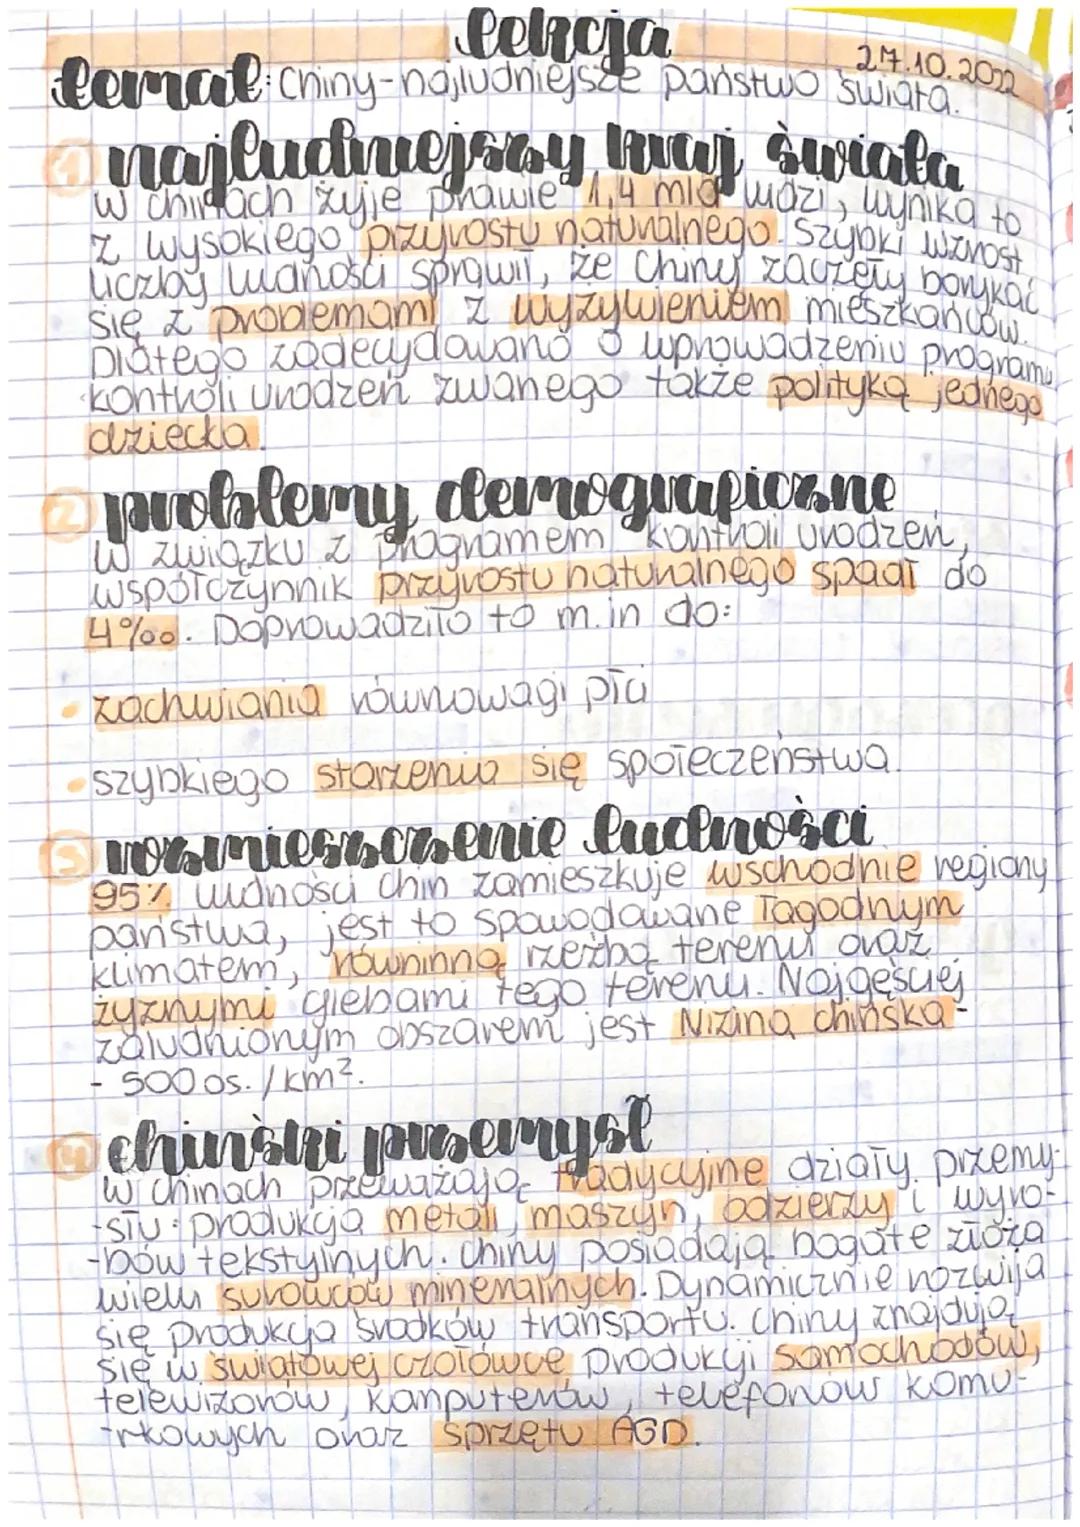 Lekcja
27.10.2022
Temat: Chiny-najludniejsze państwo świata.
1 najludniejszy kraj świata
w chinach żyje prawie 1,4 mld ludzi, wynika to
z wysokiego przyrostu naturalnego. Szybki wzrost
liczby ludności sprawił, że Chiny zaczęły borykać
się z problemami z wyżywieniem mieszkańców.
Dlatego zadecydowano o wprowadzeniu programu
kontroli urodzeń zwanego także polityką jednego
dziecka.
2 problemy demograficzne
W związku z programem kontroli urodzeń,
współczynnik przyrostu naturalnego spadł do
4‰. Doprowadziło to m.in do:
• zachwiania równowagi płci
• szybkiego starzenia się społeczeństwa.
3 rozmieszczenie ludności
95% ludności Chin zamieszkuje wschodnie regiony
państwa, jest to spowodowane łagodnym
klimatem, równinną rzeźbą terenu oraz
żyznymi glebami tego terenu. Najgęściej
zaludnionym obszarem jest Nizina chińska-
- 500 os./km².
4 chiński przemysł
w chinach przeważają tradycyjne działy przemy-
-słu: produkcja metali, maszyn, odzierzy i wyro-
-bów tekstylnych. Chiny posiadają bogate złoża
wielu surowców mineralnych. Dynamicznie rozwija
się produkcja środków transportu. Chiny znajdują
się w światowej czołówce produkcji samochodów,
telewizorów, komputerów, telefonów komó-
-rkowych oraz sprzętu AGD.